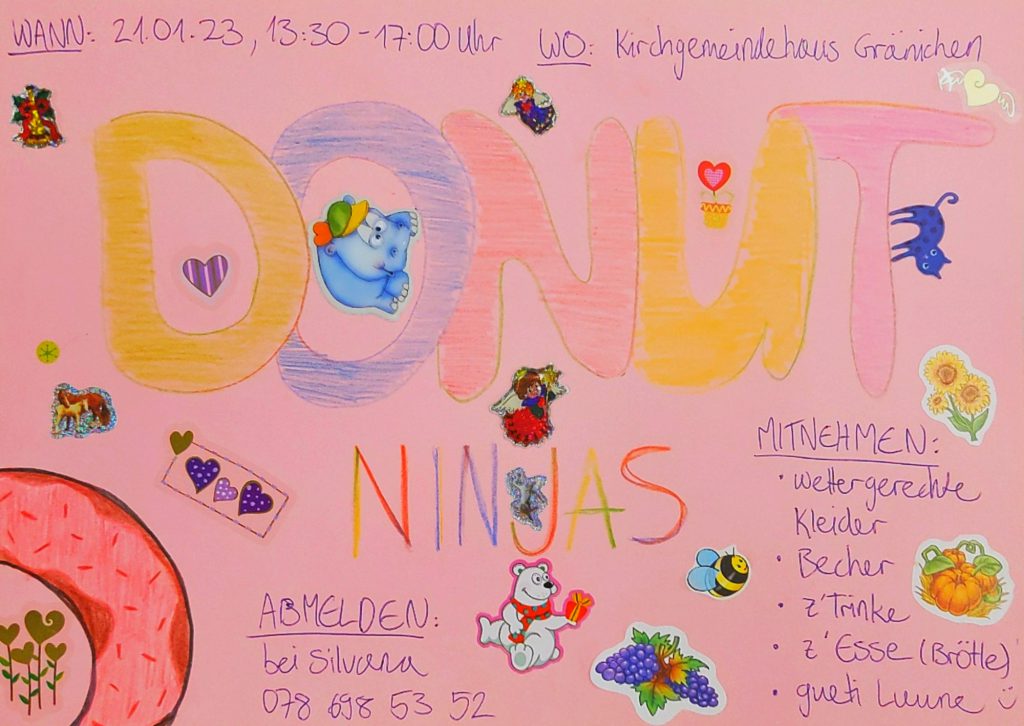 WANN: 21.01.23, 13:30-17:00 Uhr WO: Kirchgemeindehaus Gränichen
DONUT
NINJAS
MITNEHMEN:
• wettergerechte
Kleider
• Becher
• z'Trinke
• z'Esse (Brötle)
• gueti Luune ☺
ABMELDEN:
bei Silvana
078 698 53 52